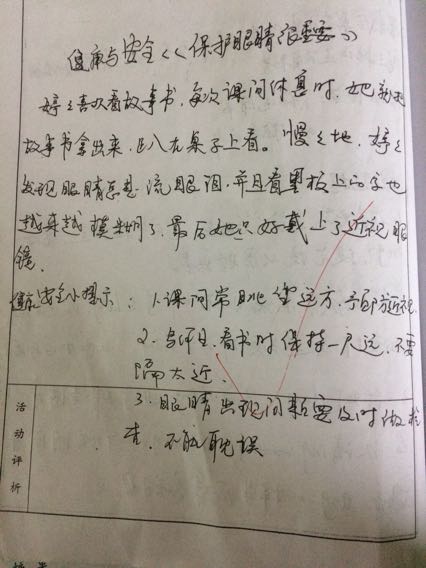 健康与安全《保护眼睛很重要》
婷婷喜欢看故事书，每次课间休息时，她就把
故事书拿出来，趴在桌子上看。慢慢地，婷婷
发现眼睛总是流眼泪，并且看黑板上的字也
越来越模糊了，最后她只好戴上了近视眼
镜。
健康安全小提示：1.课间常眺望远方，可防近视
2. 看书时保持一尺远，不要
隔太近.
3. 眼睛出现问题要及时做检
查，不能耽误
活动评析